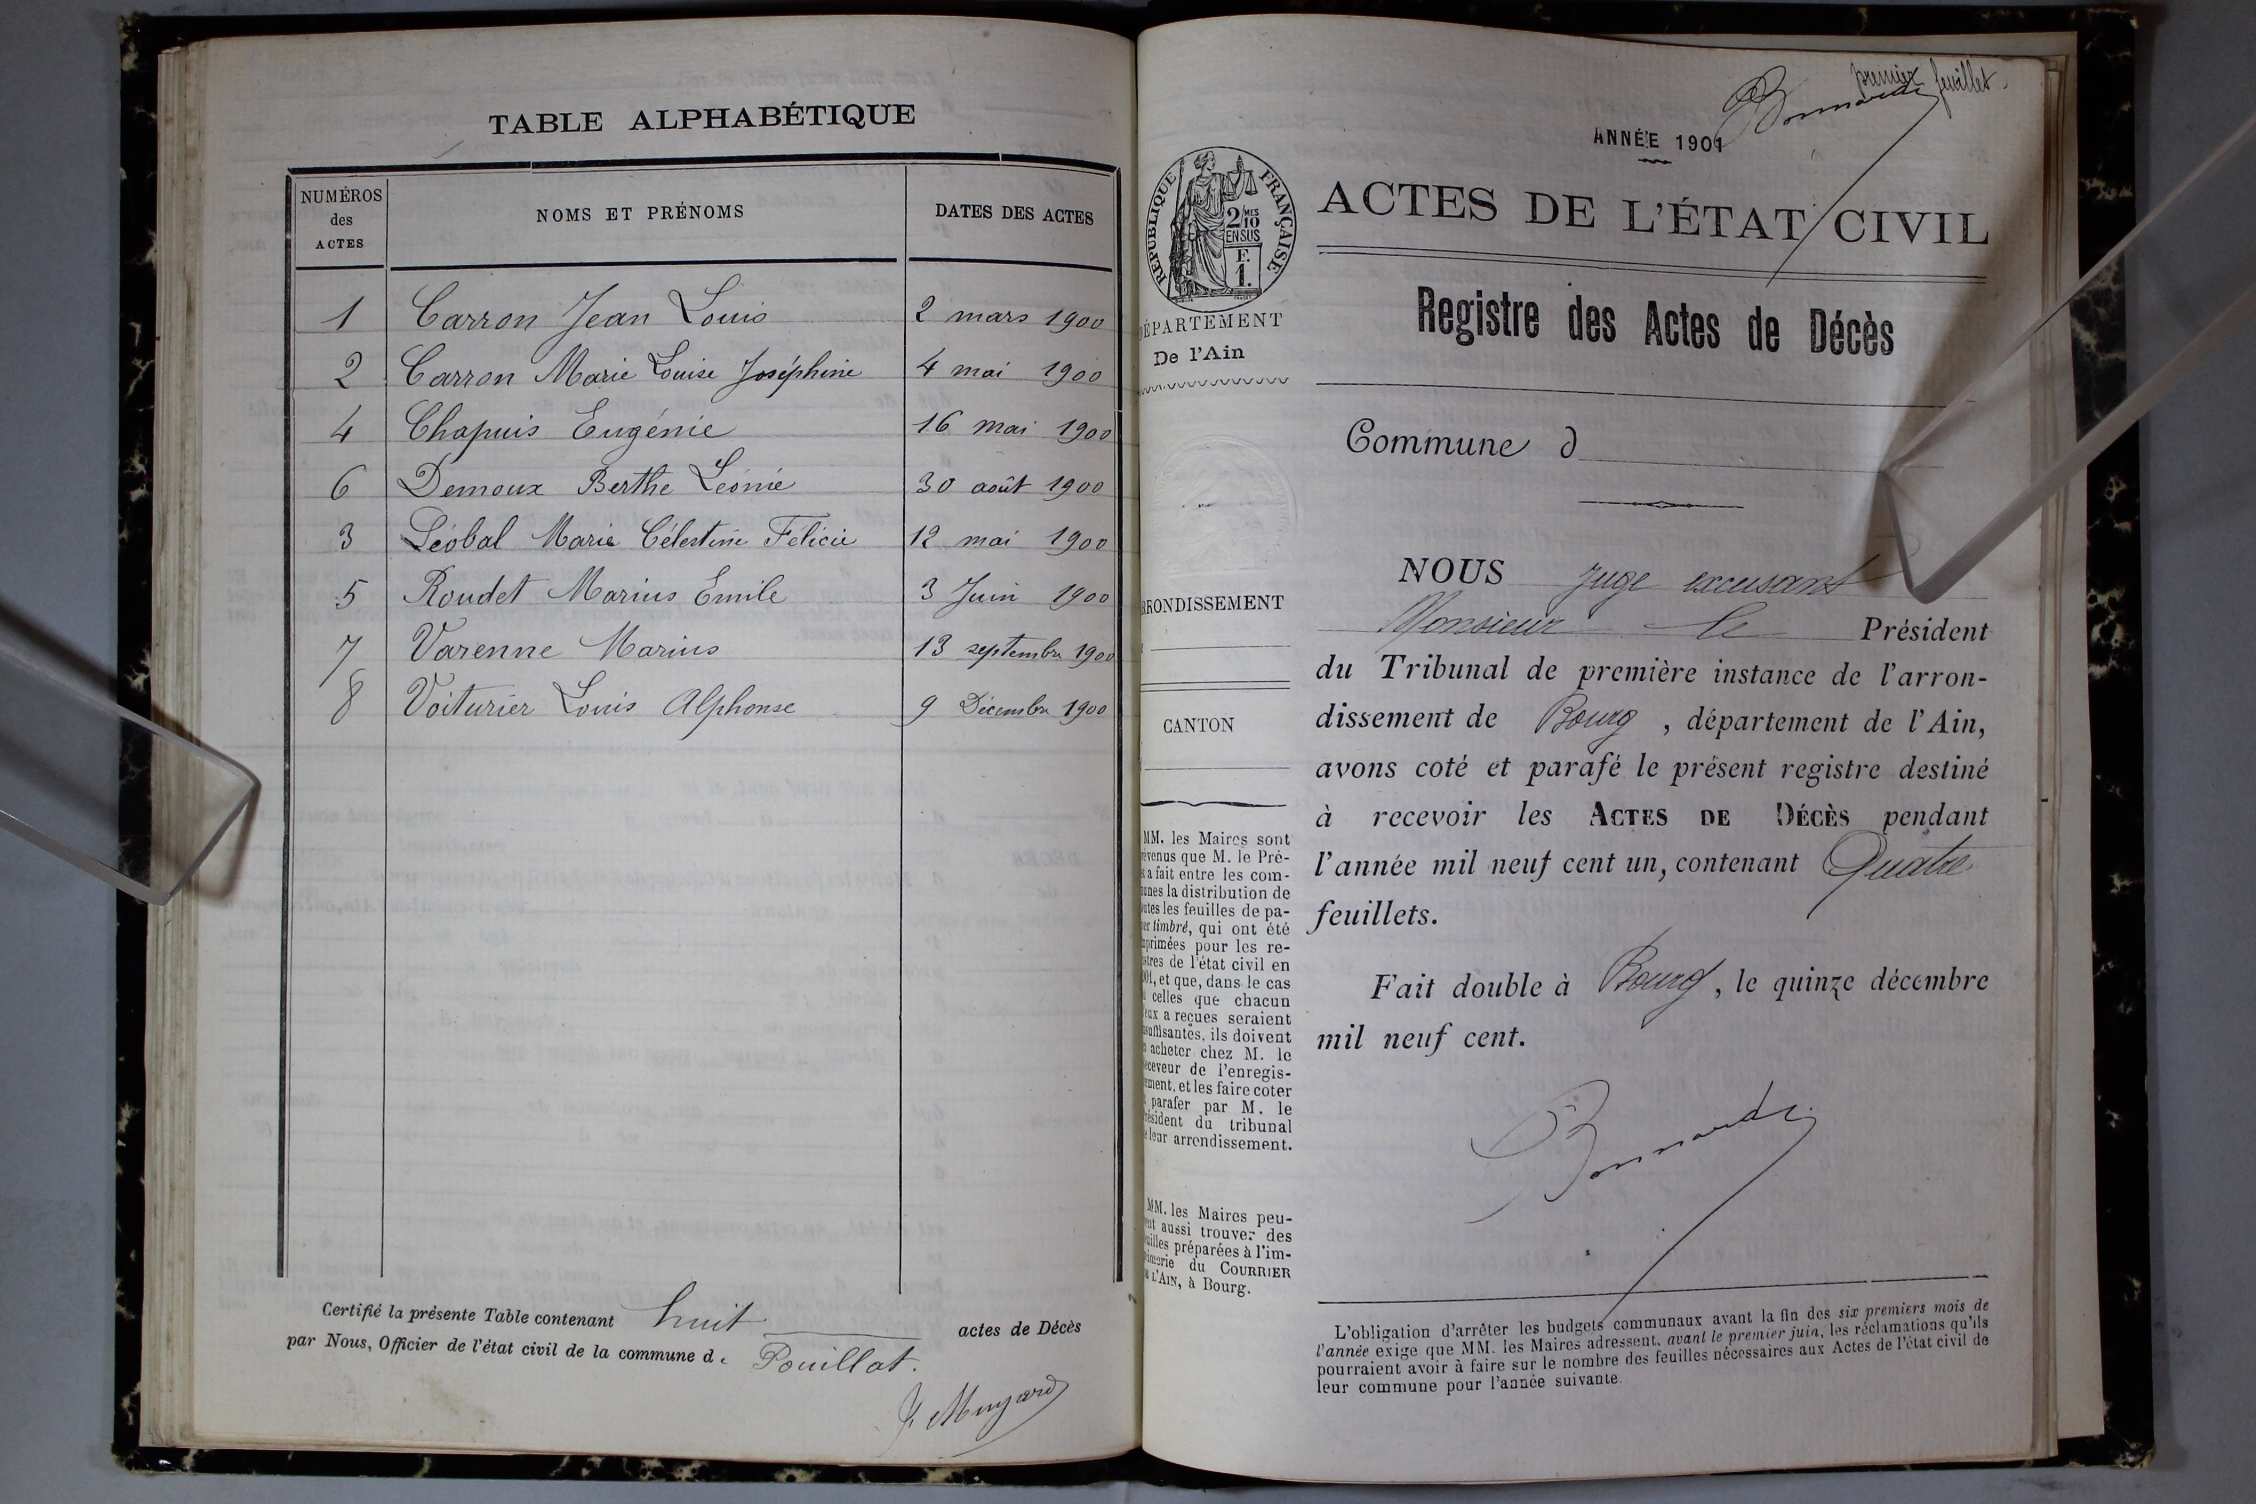 TABLE ALPHABÉTIQUE
NUMÉROS des ACTES
NOMS ET PRÉNOMS
DATES DES ACTES
1 Carron Jean Louis 2 mars 1900
2 Carron Marie Louise Joséphine 4 mai 1900
4 Chapuis Eugénie 16 mai 1900
6 Demoux Berthe Léonie 30 août 1900
3 Léobal Marie Célestine Félicie 12 mai 1900
5 Roudet Marius Emile 3 Juin 1900
7 Varenne Marius 13 septembre 1900
8 Voiturier Louis Alphonse 9 Décembre 1900
Certifié la présente Table contenant huit actes de Décès
par Nous, Officier de l'état civil de la commune d. Pouillat.
premier feuillet.
ANNÉE 1901
RÉPUBLIQUE FRANÇAISE
2/10 MES
EN SUS
F.
1.
ACTES DE L'ÉTAT CIVIL
Registre des Actes de Décès
DÉPARTEMENT
De l'Ain
Commune d
ARRONDISSEMENT
CANTON
MM. les Maires sont
prévenus que M. le Pré-
fet a fait entre les com-
munes la distribution de
toutes les feuilles de pa-
pier timbré, qui ont été
imprimées pour les re-
gistres de l'état civil en
1901, et que, dans le cas
où celles que chacun
d'eux a reçues seraient
insuffisantes, ils doivent
en acheter chez M. le
receveur de l'enregis-
trement, et les faire coter
et parafer par M. le
Président du tribunal
de leur arrondissement.
MM. les Maires peu-
vent aussi trouver des
feuilles préparées à l'im-
primerie du COURRIER
DE L'AIN, à Bourg.
NOUS juge excusant
Monsieur le Président
du Tribunal de première instance de l'arron-
dissement de Bourg, département de l'Ain,
avons coté et parafé le présent registre destiné
à recevoir les ACTES DE DÉCÈS pendant
l'année mil neuf cent un, contenant Quatre
feuillets.
Fait double à Bourg, le quinze décembre
mil neuf cent.
L'obligation d'arrêter les budgets communaux avant la fin des six premiers mois de
l'année exige que MM. les Maires adressent, avant le premier juin, les réclamations qu'ils
pourraient avoir à faire sur le nombre des feuilles nécessaires aux Actes de l'état civil de
leur commune pour l'année suivante.